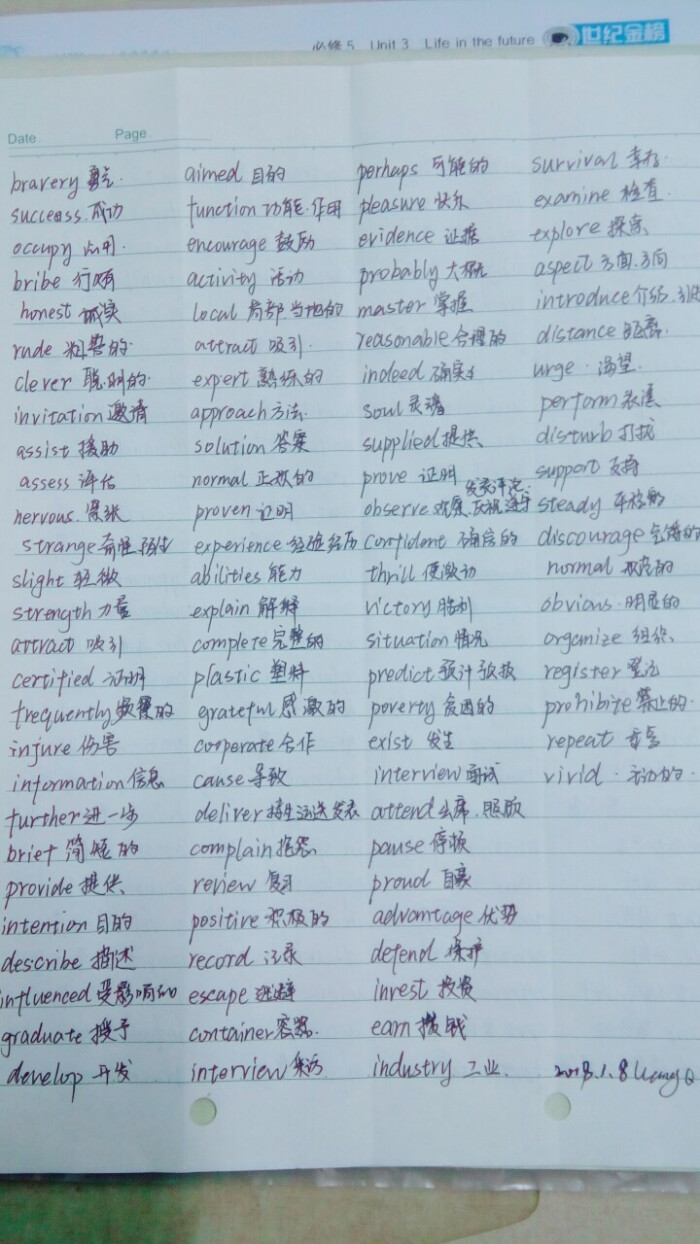 必修 5 Unit 3 Life in the future 世纪金榜
Date Page
bravery 勇气 aimed 目的 perhaps 可能的 survival 幸存
success 成功 function 功能.作用 pleasure 快乐 examine 检查
occupy 占用 encourage 鼓励 evidence 证据 explore 探索
bribe 行贿 activity 活动 probably 大概 aspect 方面.方向
honest 诚实 local 局部 当地的 master 掌握 introduce 介绍.
rude 粗鲁的 attract 吸引. reasonable 合理的 distance 距离.
clever 聪明的. expert 熟练的 indeed 确实 urge . 渴望.
invitation 邀请 approach 方法. soul 灵魂 perform 表演
assist 援助 solution 答案 supplied 提供 disturb 打扰
assess 评估 normal 正规的 prove 证明 support 支持
发表评论.
nervous. 紧张 proven 证明 observe 观察、庆祝 遵守 steady 平稳的
strange 奇怪 陌生 experience 经验 经历 confident 确信的 discourage
slight 轻微 abilities 能力 thrill 使激动 normal 规范的
strength 力量 explain 解释 victory 胜利 obvious. 明显的
attract 吸引 complete 完整的 situation 情况 organize 组织、
certified 证明 plastic 塑料 predict 预计 register 登记
frequently 频繁的 grateful 感激的 poverty 贫困的 prohibite 禁止的.
injure 伤害 cooperate 合作 exist 发生 repeat 重复
information 信息 cause 导致 interview 面试 vivid . 生动的.
further 进一步 deliver 接生 运送 发表 attend 出席.照顾
brief 简短的 complain 抱怨 pause 停顿
provide 提供 review 复习 proud 自豪
intention 目的 positive 积极的 advantage 优势
describe 描述 record 记录 defend 保护
influenced 受影响的 escape 逃避 invest 投资
graduate 授予 container 容器. earn 挣钱
develop 开发 interview 采访 industry 工业. 2018.1.8